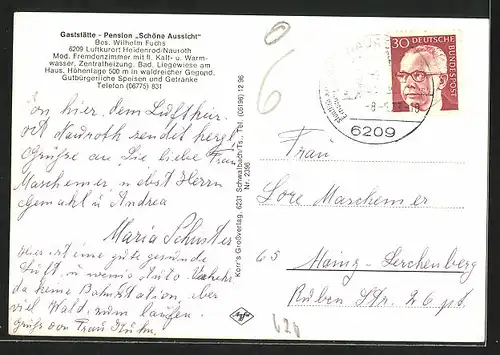 Gaststätte - Pension „Schöne Aussicht"
Bes. Wilhelm Fuchs
6209 Luftkurort Heidenrod-Nauroth
Mod. Fremdenzimmer mit fl. Kalt- u. Warm-
wasser, Zentralheizung, Bad, Liegewiese am
Haus, Höhenlage 500 m in waldreicher Gegend.
Gutbürgerliche Speisen und Getränke
Telefon (06775) 831
Von hier, dem Luftkur-
ort Nauroth sendet herzl.
Grüsse an Sie liebe Frau
Marschemer, nebst Herrn
Gemahl u. Andrea
Maria Schuster
hier ist eine gute gesunde
Luft, wenig Auto Verkehr
da keine Bahnstation, aber
viel Wald, zum laufen.
Grüsse von Frau
Korr's Großverlag, 6231 Schwalbach/Ts., Tel. (06196) 12 96
Nr. 2396
6
30
DEUTSCHE
BUNDESPOST
6209
Frau
Lore Marschemer
65 Mainz-Lerchenberg
Ruben Str. 26 pt.
AGFA